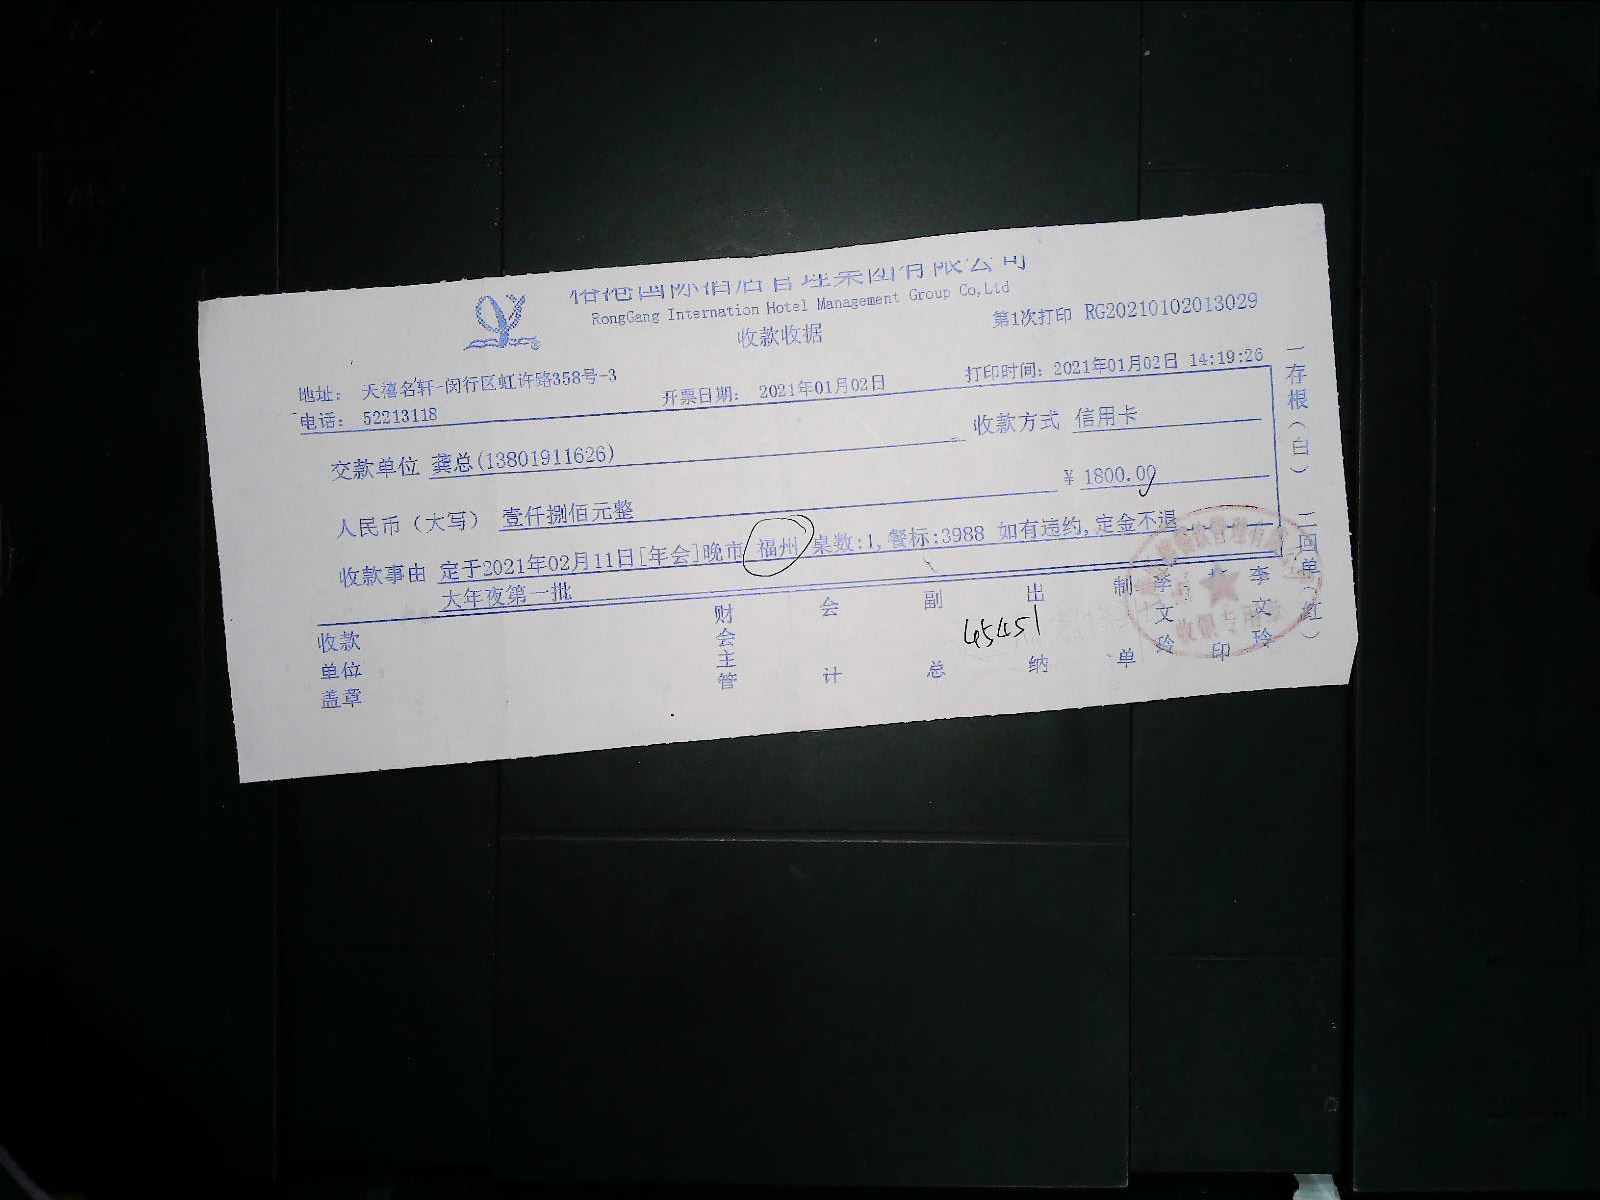 国际酒店管理集团有限公司
RongGang Internation Hotel Management Group Co,Ltd
收款收据
第1次打印 RG20210102013029
地址： 天禧名轩-闵行区虹许路358号-3
电话： 52213118
开票日期： 2021年01月02日
打印时间：2021年01月02日 14:19:26
交款单位 龚总(13801911626)
收款方式 信用卡
人民币（大写） 壹仟捌佰元整
￥ 1800.00
收款事由 定于2021年02月11日[年会]晚市 福州 桌数:1,餐标:3988 如有违约,定金不退
大年夜第一批
收款单位盖章
财会主管
会计
副总
出纳
45451
制单
李文玲
印
李文玲
一存根（白）
二回单（红）